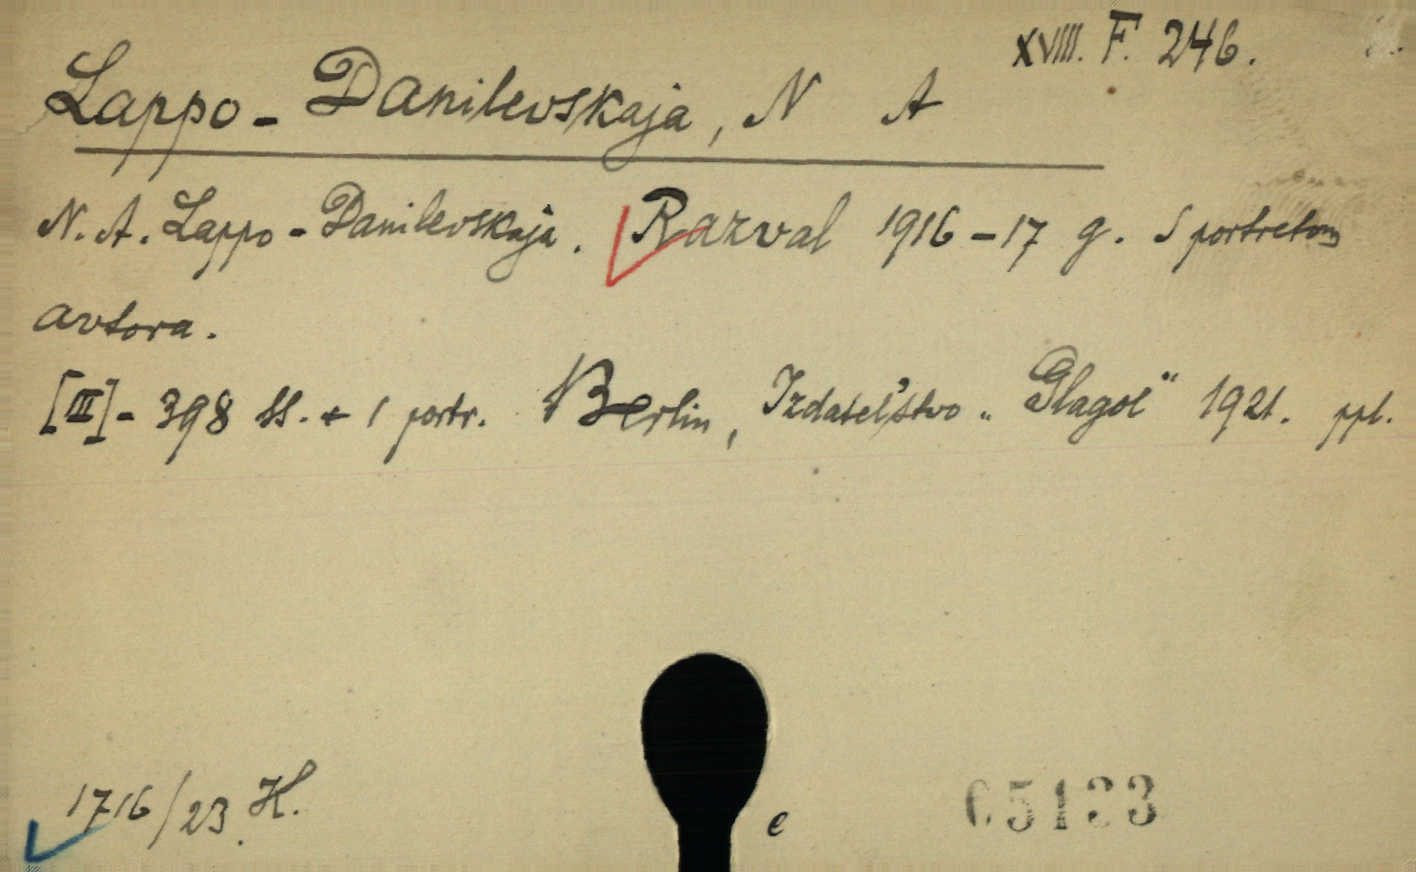 XVIII. F. 246.
Lappo-Danilevskaja, N A
N. A. Lappo-Danilevskaja. Razval 1916-17 g. S portretom
avtora.
[III]-398 SS. + 1 portr. Berlin, Izdatel'stvo „Glagol" 1921. ppl.
1716/23. H.
e